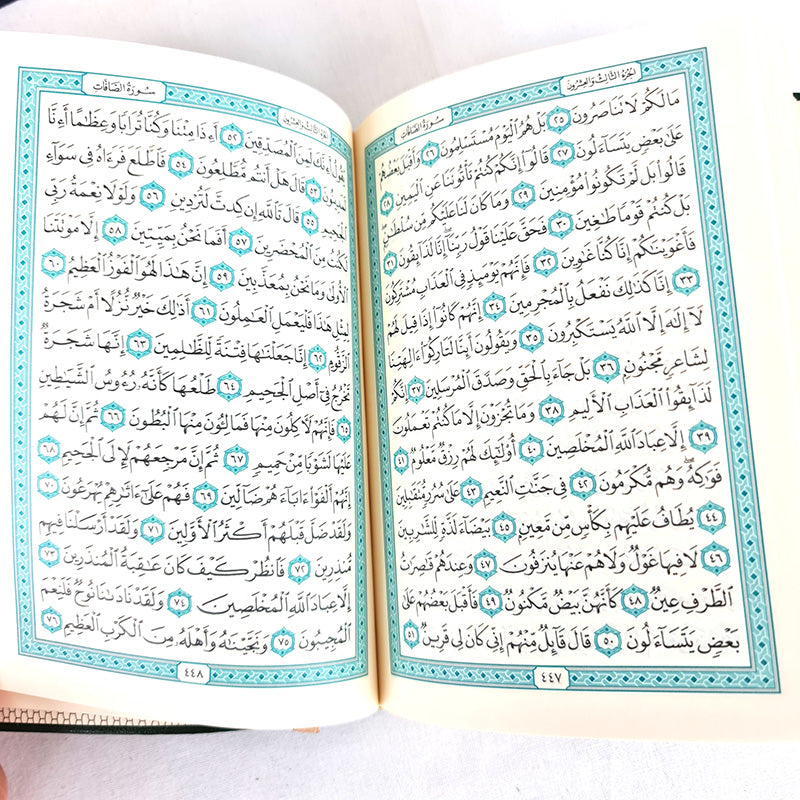 الجزء الثالث والعشرون
سورة الصافات
مَا لَكُمْ لَا تَنَاصَرُونَ ٢٥ بَلْ هُمُ الْيَوْمَ مُسْتَسْلِمُونَ ٢٦ وَأَقْبَلَ بَعْضُهُمْ
عَلَىٰ بَعْضٍ يَتَسَاءَلُونَ ٢٧ قَالُوا إِنَّكُمْ كُنْتُمْ تَأْتُونَنَا عَنِ الْيَمِينِ ٢٨
قَالُوا بَل لَّمْ تَكُونُوا مُؤْمِنِينَ ٢٩ وَمَا كَانَ لَنَا عَلَيْكُم مِّن سُلْطَانٍ
بَلْ كُنتُمْ قَوْمًا طَاغِينَ ٣٠ فَحَقَّ عَلَيْنَا قَوْلُ رَبِّنَا إِنَّا لَذَائِقُونَ ٣١
فَأَغْوَيْنَاكُمْ إِنَّا كُنَّا غَاوِينَ ٣٢ فَإِنَّهُمْ يَوْمَئِذٍ فِي الْعَذَابِ مُشْتَرِكُونَ
٣٣ إِنَّا كَذَٰلِكَ نَفْعَلُ بِالْمُجْرِمِينَ ٣٤ إِنَّهُمْ كَانُوا إِذَا قِيلَ لَهُمْ
لَا إِلَٰهَ إِلَّا اللَّهُ يَسْتَكْبِرُونَ ٣٥ وَيَقُولُونَ أَئِنَّا لَتَارِكُو آلِهَتِنَا
لِشَاعِرٍ مَّجْنُونٍ ٣٦ بَلْ جَاءَ بِالْحَقِّ وَصَدَّقَ الْمُرْسَلِينَ ٣٧ إِنَّكُمْ
لَذَائِقُو الْعَذَابِ الْأَلِيمِ ٣٨ وَمَا تُجْزَوْنَ إِلَّا مَا كُنتُمْ تَعْمَلُونَ
٣٩ إِلَّا عِبَادَ اللَّهِ الْمُخْلَصِينَ ٤٠ أُولَٰئِكَ لَهُمْ رِزْقٌ مَّعْلُومٌ ٤١
فَوَاكِهُ وَهُم مُّكْرَمُونَ ٤٢ فِي جَنَّاتِ النَّعِيمِ ٤٣ عَلَىٰ سُرُرٍ مُّتَقَابِلِينَ
٤٤ يُطَافُ عَلَيْهِم بِكَأْسٍ مِّن مَّعِينٍ ٤٥ بَيْضَاءَ لَذَّةٍ لِّلشَّارِبِينَ
٤٦ لَا فِيهَا غَوْلٌ وَلَا هُمْ عَنْهَا يُنزَفُونَ ٤٧ وَعِندَهُمْ قَاصِرَاتُ
الطَّرْفِ عِينٌ ٤٨ كَأَنَّهُنَّ بَيْضٌ مَّكْنُونٌ ٤٩ فَأَقْبَلَ بَعْضُهُمْ عَلَىٰ
بَعْضٍ يَتَسَاءَلُونَ ٥٠ قَالَ قَائِلٌ مِّنْهُمْ إِنِّي كَانَ لِي قَرِينٌ ٥١
٤٤٧
الجزء الثالث والعشرون
سورة الصافات
يَقُولُ أَءِنَّكَ لَمِنَ الْمُصَدِّقِينَ ٥٢ أَءِذَا مِتْنَا وَكُنَّا تُرَابًا وَعِظَامًا أَءِنَّا
لَمَدِينُونَ ٥٣ قَالَ هَلْ أَنتُم مُّطَّلِعُونَ ٥٤ فَاطَّلَعَ فَرَءَاهُ فِي سَوَاءِ
الْجَحِيمِ ٥٥ قَالَ تَاللَّهِ إِن كِدتَّ لَتُرْدِينِ ٥٦ وَلَوْلَا نِعْمَةُ رَبِّي
لَكُنتُ مِنَ الْمُحْضَرِينَ ٥٧ أَفَمَا نَحْنُ بِمَيِّتِينَ ٥٨ إِلَّا مَوْتَتَنَا
الْأُولَىٰ وَمَا نَحْنُ بِمُعَذَّبِينَ ٥٩ إِنَّ هَٰذَا لَهُوَ الْفَوْزُ الْعَظِيمُ ٦٠
لِمِثْلِ هَٰذَا فَلْيَعْمَلِ الْعَامِلُونَ ٦١ أَذَٰلِكَ خَيْرٌ نُّزُلًا أَمْ شَجَرَةُ
الزَّقُّومِ ٦٢ إِنَّا جَعَلْنَاهَا فِتْنَةً لِّلظَّالِمِينَ ٦٣ إِنَّهَا شَجَرَةٌ
تَخْرُجُ فِي أَصْلِ الْجَحِيمِ ٦٤ طَلْعُهَا كَأَنَّهُ رُءُوسُ الشَّيَاطِينِ
٦٥ فَإِنَّهُمْ لَآكِلُونَ مِنْهَا فَمَالِئُونَ مِنْهَا الْبُطُونَ ٦٦ ثُمَّ إِنَّ لَهُمْ
عَلَيْهَا لَشَوْبًا مِّنْ حَمِيمٍ ٦٧ ثُمَّ إِنَّ مَرْجِعَهُمْ لَإِلَى الْجَحِيمِ ٦٨
إِنَّهُمْ أَلْفَوْا ءَابَاءَهُمْ ضَالِّينَ ٦٩ فَهُمْ عَلَىٰ ءَاثَارِهِمْ يُهْرَعُونَ ٧٠
وَلَقَدْ ضَلَّ قَبْلَهُمْ أَكْثَرُ الْأَوَّلِينَ ٧١ وَلَقَدْ أَرْسَلْنَا فِيهِم
مُّنذِرِينَ ٧٢ فَانظُرْ كَيْفَ كَانَ عَاقِبَةُ الْمُنذَرِينَ ٧٣
إِلَّا عِبَادَ اللَّهِ الْمُخْلَصِينَ ٧٤ وَلَقَدْ نَادَانَا نُوحٌ فَلَنِعْمَ
الْمُجِيبُونَ ٧٥ وَنَجَّيْنَاهُ وَأَهْلَهُ مِنَ الْكَرْبِ الْعَظِيمِ ٧٦
٤٤٨